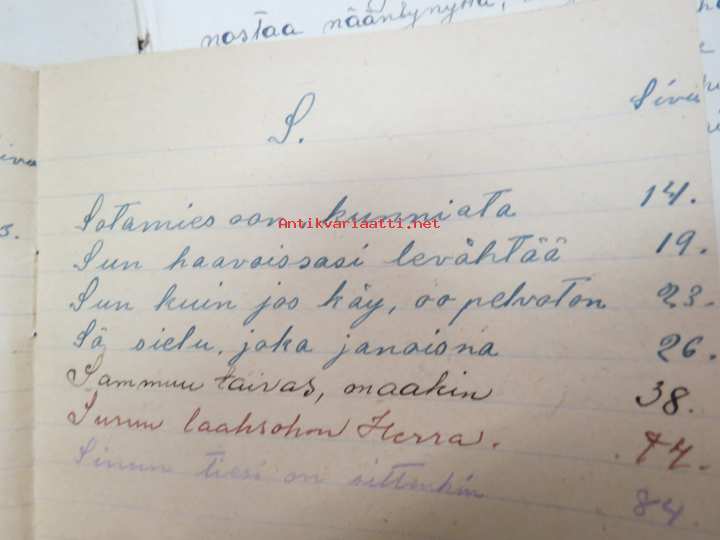 nostaa nääntynyttä,
Sivu
S.
Sotamies oon, kunniata 14.
Antikvariaatti.net
Sun haavoissasi levähtää 19.
Sun kuin jos käy, oo pelvoton 23.
Sä sielu, joka janoisna 26.
Sammuu taivas, maakin 38.
Surun laaksohon Herra. 44.
Sinun tiesi on sittenkin 84.